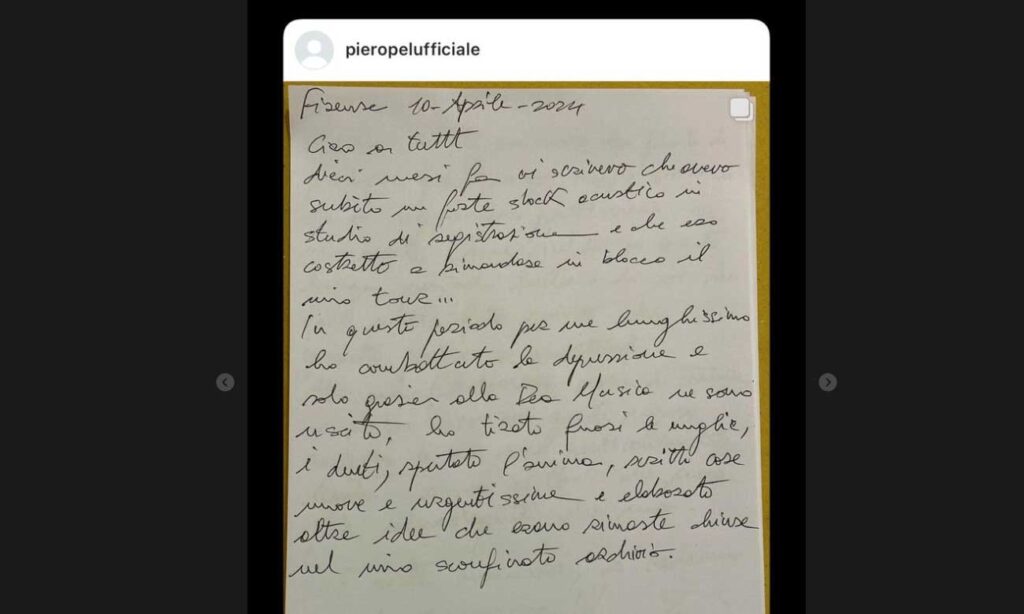 pieropelufficiale
Firenze 10-Aprile-2024
Ciao a tutti
dieci mesi fa vi scrivevo che avevo
subito un forte shock acustico in
studio di registrazione e che ero
costretto a rimandare in blocco il
mio tour...
In questo periodo per me lunghissimo
ho combattuto la depressione e
solo grazie alla Dea Musica ne sono
uscito, ho tirato fuori le unghie,
i denti, sputato l'anima, scritto cose
nuove e urgentissime e elaborato
altre idee che erano rimaste chiuse
nel mio sconfinato archivio.